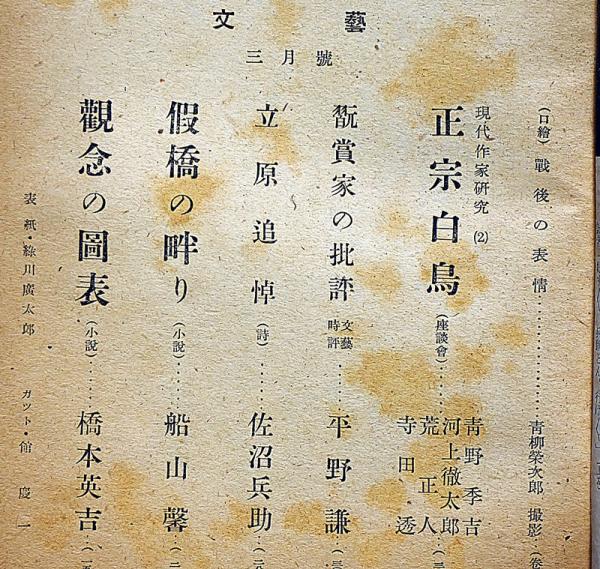 文藝
三月號
(口繪) 戰後の表情…………青柳榮次郎 撮影…(卷
現代作家硏究 (2)
正宗白鳥 (座談會)……
靑野季吉
河上徹太郎
荒正人
寺田透
(三
翫賞家の批評 文藝時評……平野謙…(三〇
立原追悼 (詩)……佐沼兵助…(二八
假橋の畔り (小說)……船山馨…(二
觀念の圖表 (小說)……橋本英吉…(一五
表紙・綠川廣太郎 カット・館慶一